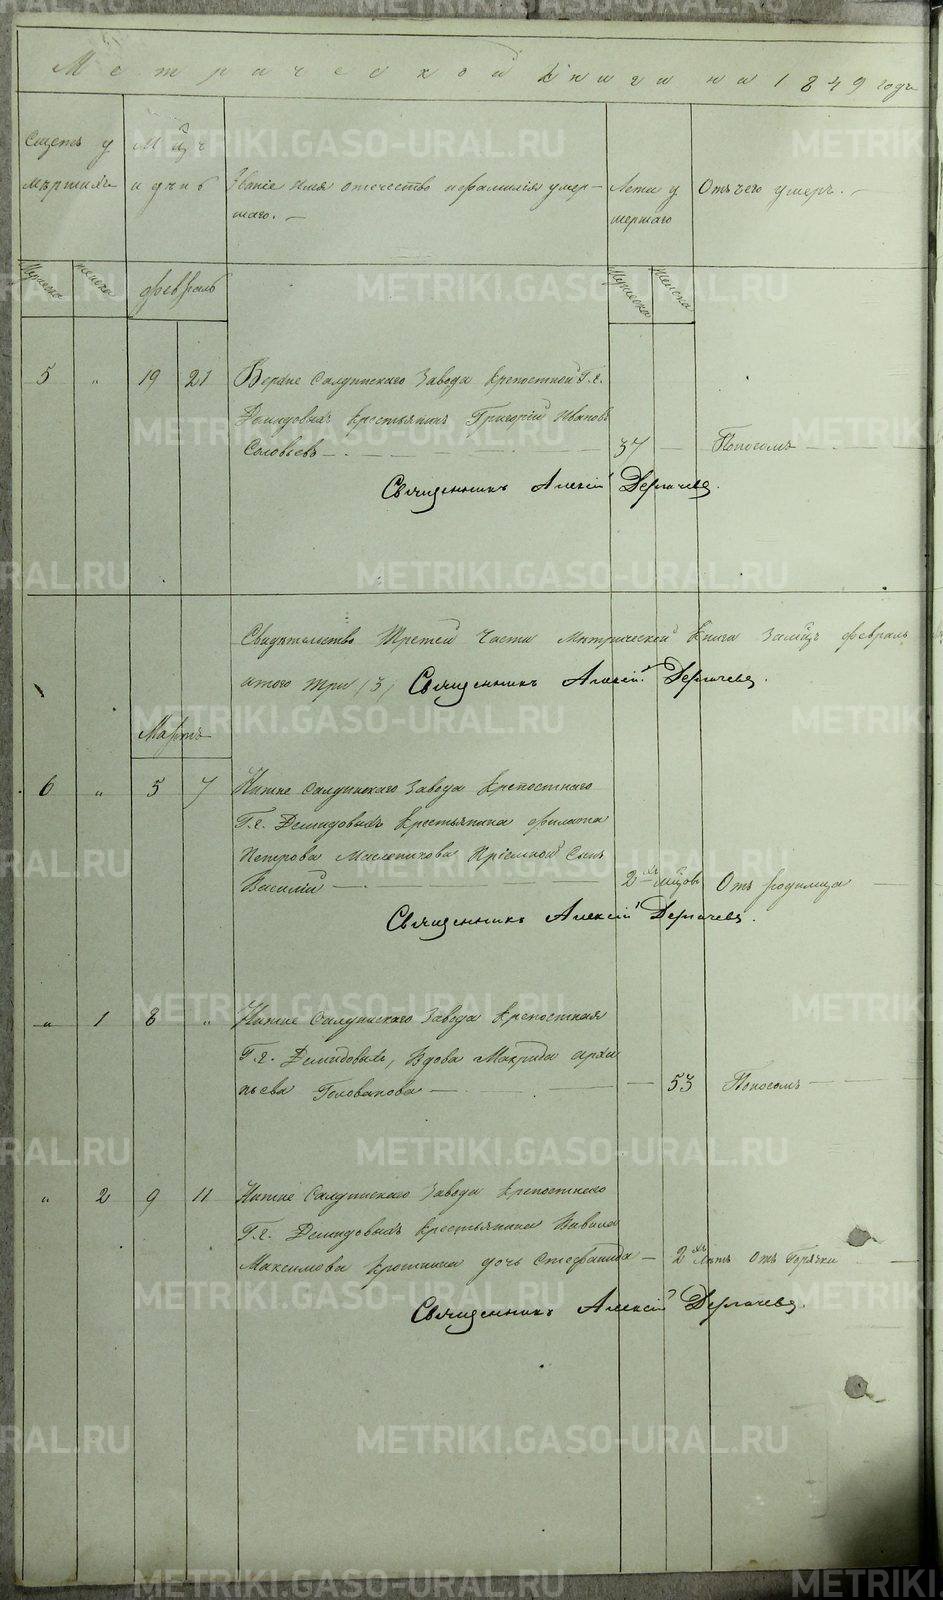 Метрической книги на 1849 годъ
Счетъ у Мѣ̃ц
мершихъ и дни Званіе имя отечество и фамилія умер- Лета у Отъ чего умеръ. –
шаго. – мершаго
Мужеска Женска Февраль Мужеска Женска
5 " 19 21 Верхне Салдинскаго Завода Крепостной Г.г.
Демидовыхъ Крестьянинъ Григорій Ивановъ
Соловьевъ – 37 – Поносомъ –
Священникъ Алексій Дергачевъ.
Свидѣтельство Третей Части Метрической Книги За мѣ̃цъ Февраль
атого три (3) Священникъ Алексій Дергачевъ.
Мартъ
6 " 5 7 Нижне Салдинскаго Завода Крепостнаго
Г.г. Демидовыхъ Крестьянина Филата
Петрова Масленикова Пріемной Сынъ
Василій – 2хъ мѣ̃цовъ Отъ родимца –
Священникъ Алексій Дергачевъ.
" 1 8 " Нижне Салдинскаго Завода Крепостная
Г.г. Демидовыхъ, Вдова Макрида Архи
пьева Голованова – – 53 Поносомъ –
" 2 9 11 Нижне Салдинскаго Завода Крепостнаго
Г.г. Демидовыхъ Крестьянина Вавила
Максимова дочь Стефанида – 2хъ лѣтъ Отъ Горячки
Священникъ Алексій Дергачевъ.
METRIKI.GASO-URAL.RU